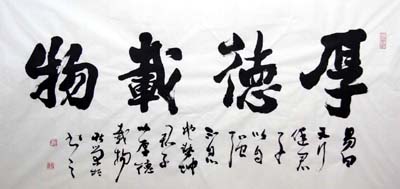 厚德載物
易曰
天行
健君
子
以自
强
不息
地勢坤
君子
以厚德
載物